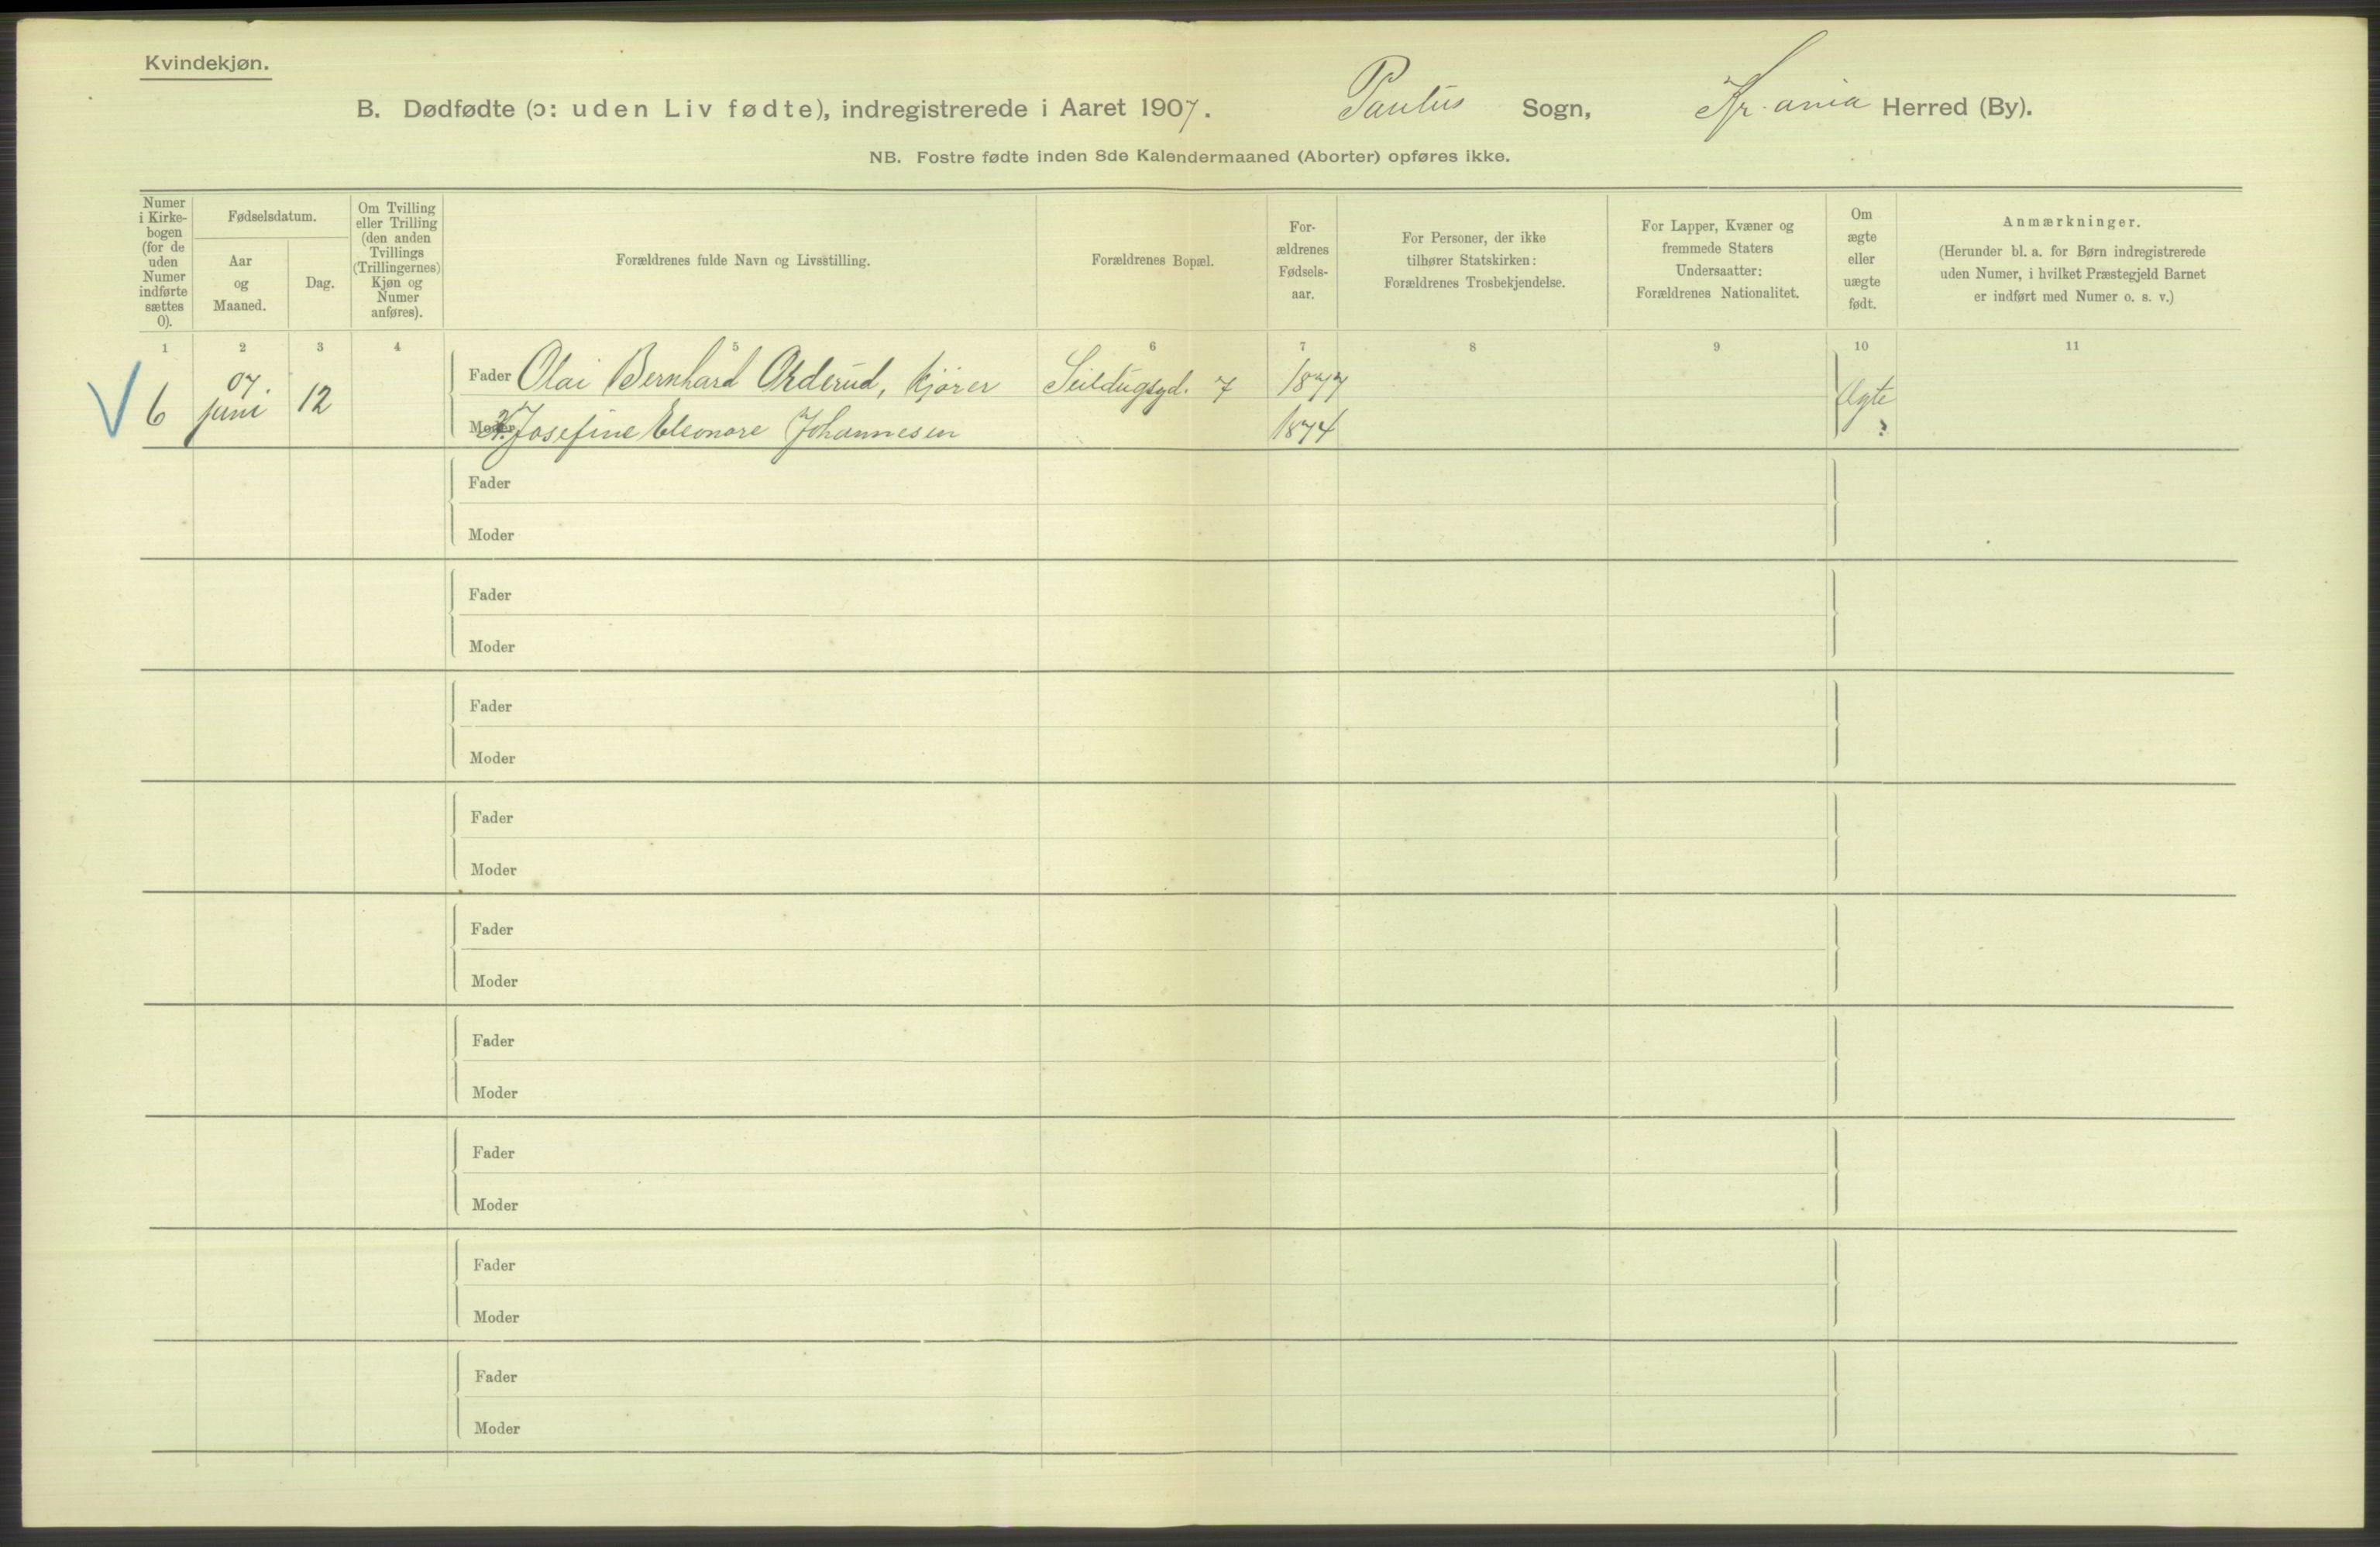 Kvindekjøn.
B. Dødfødte (ɔ: uden Liv fødte), indregistrerede i Aaret 1907. Paulus Sogn, Kr.ania Herred (By).
NB. Fostre fødte inden 8de Kalendermaaned (Aborter) opføres ikke.
Numer
i Kirke-
bogen
(for de
uden
Numer
indførte
sættes
0).
Fødselsdatum.
Aar
og
Maaned.
Dag.
Om Tvilling
eller Trilling
(den anden
Tvillings
(Trillingernes)
Kjøn og
Numer
anføres).
Forældrenes fulde Navn og Livsstilling.
Forældrenes Bopæl.
For-
ældrenes
Fødsels-
aar.
For Personer, der ikke
tilhører Statskirken:
Forældrenes Trosbekjendelse.
For Lapper, Kvæner og
fremmede Staters
Undersaatter:
Forældrenes Nationalitet.
Om
ægte
eller
uægte
født.
Anmærkninger.
(Herunder bl. a. for Børn indregistrerede
uden Numer, i hvilket Præstegjeld Barnet
er indført med Numer o. s. v.)
1 2 3 4 5 6 7 8 9 10 11
6 07. juni 12
Fader Olai Bernhard Orderud, kjører Seildugsgd. 7 1877 Ægte
Moder Josefine Eleonore Johannesen 1874 ?
Fader
Moder
Fader
Moder
Fader
Moder
Fader
Moder
Fader
Moder
Fader
Moder
Fader
Moder
Fader
Moder
Fader
Moder